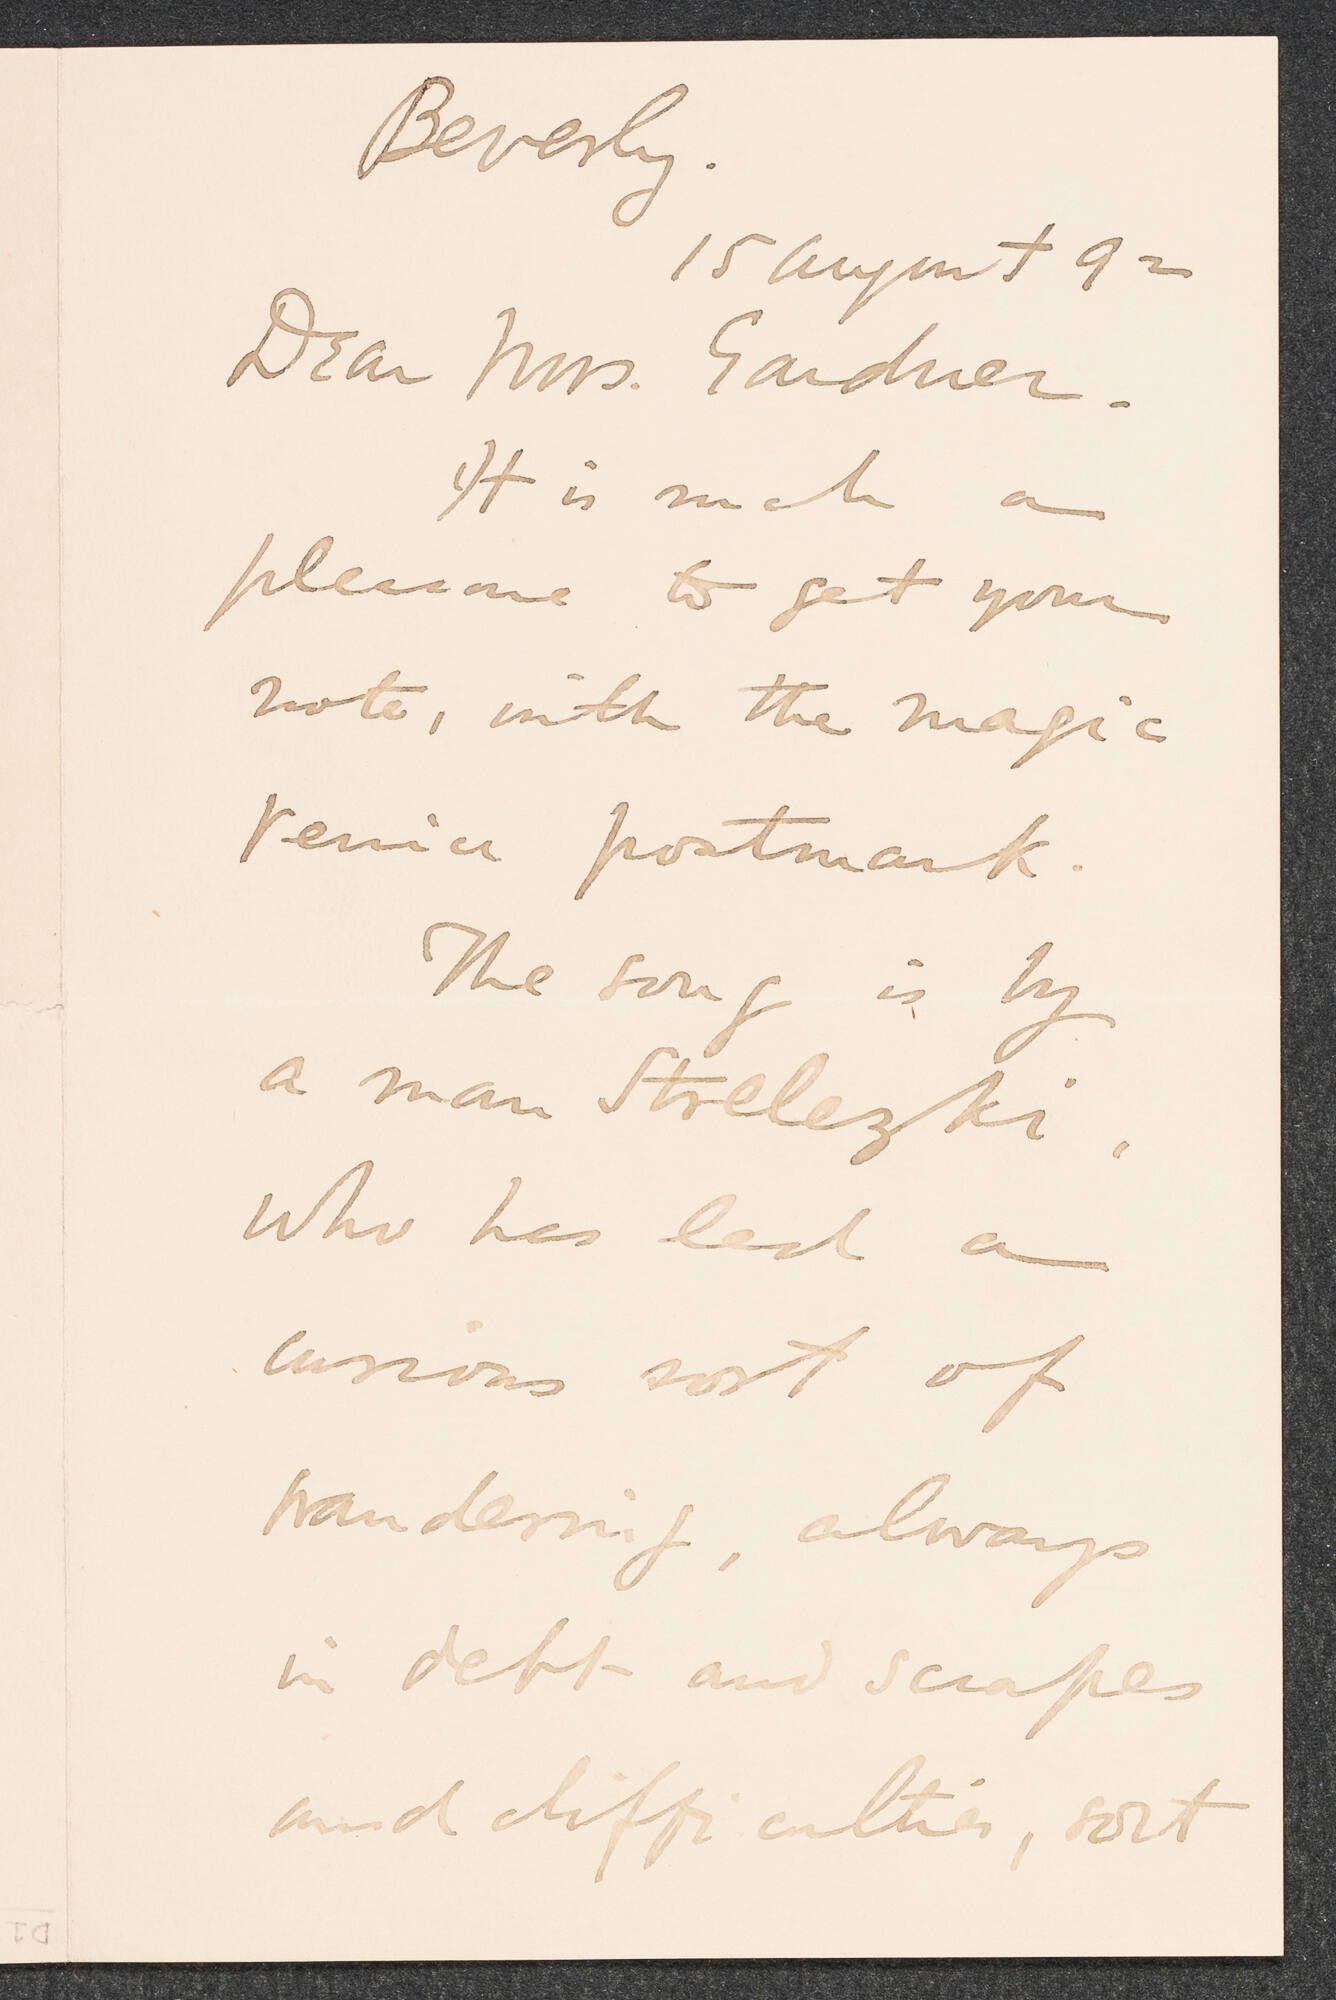 Beverly.
15 August 92
Dear Mrs. Gardner.
It is such a
pleasure to get your
note, with the magic
Venice postmark.
The song is by
a man Strelezki,
who has led a
curious sort of
wandering, always
in debt and scrapes
and difficulties, sort
D1